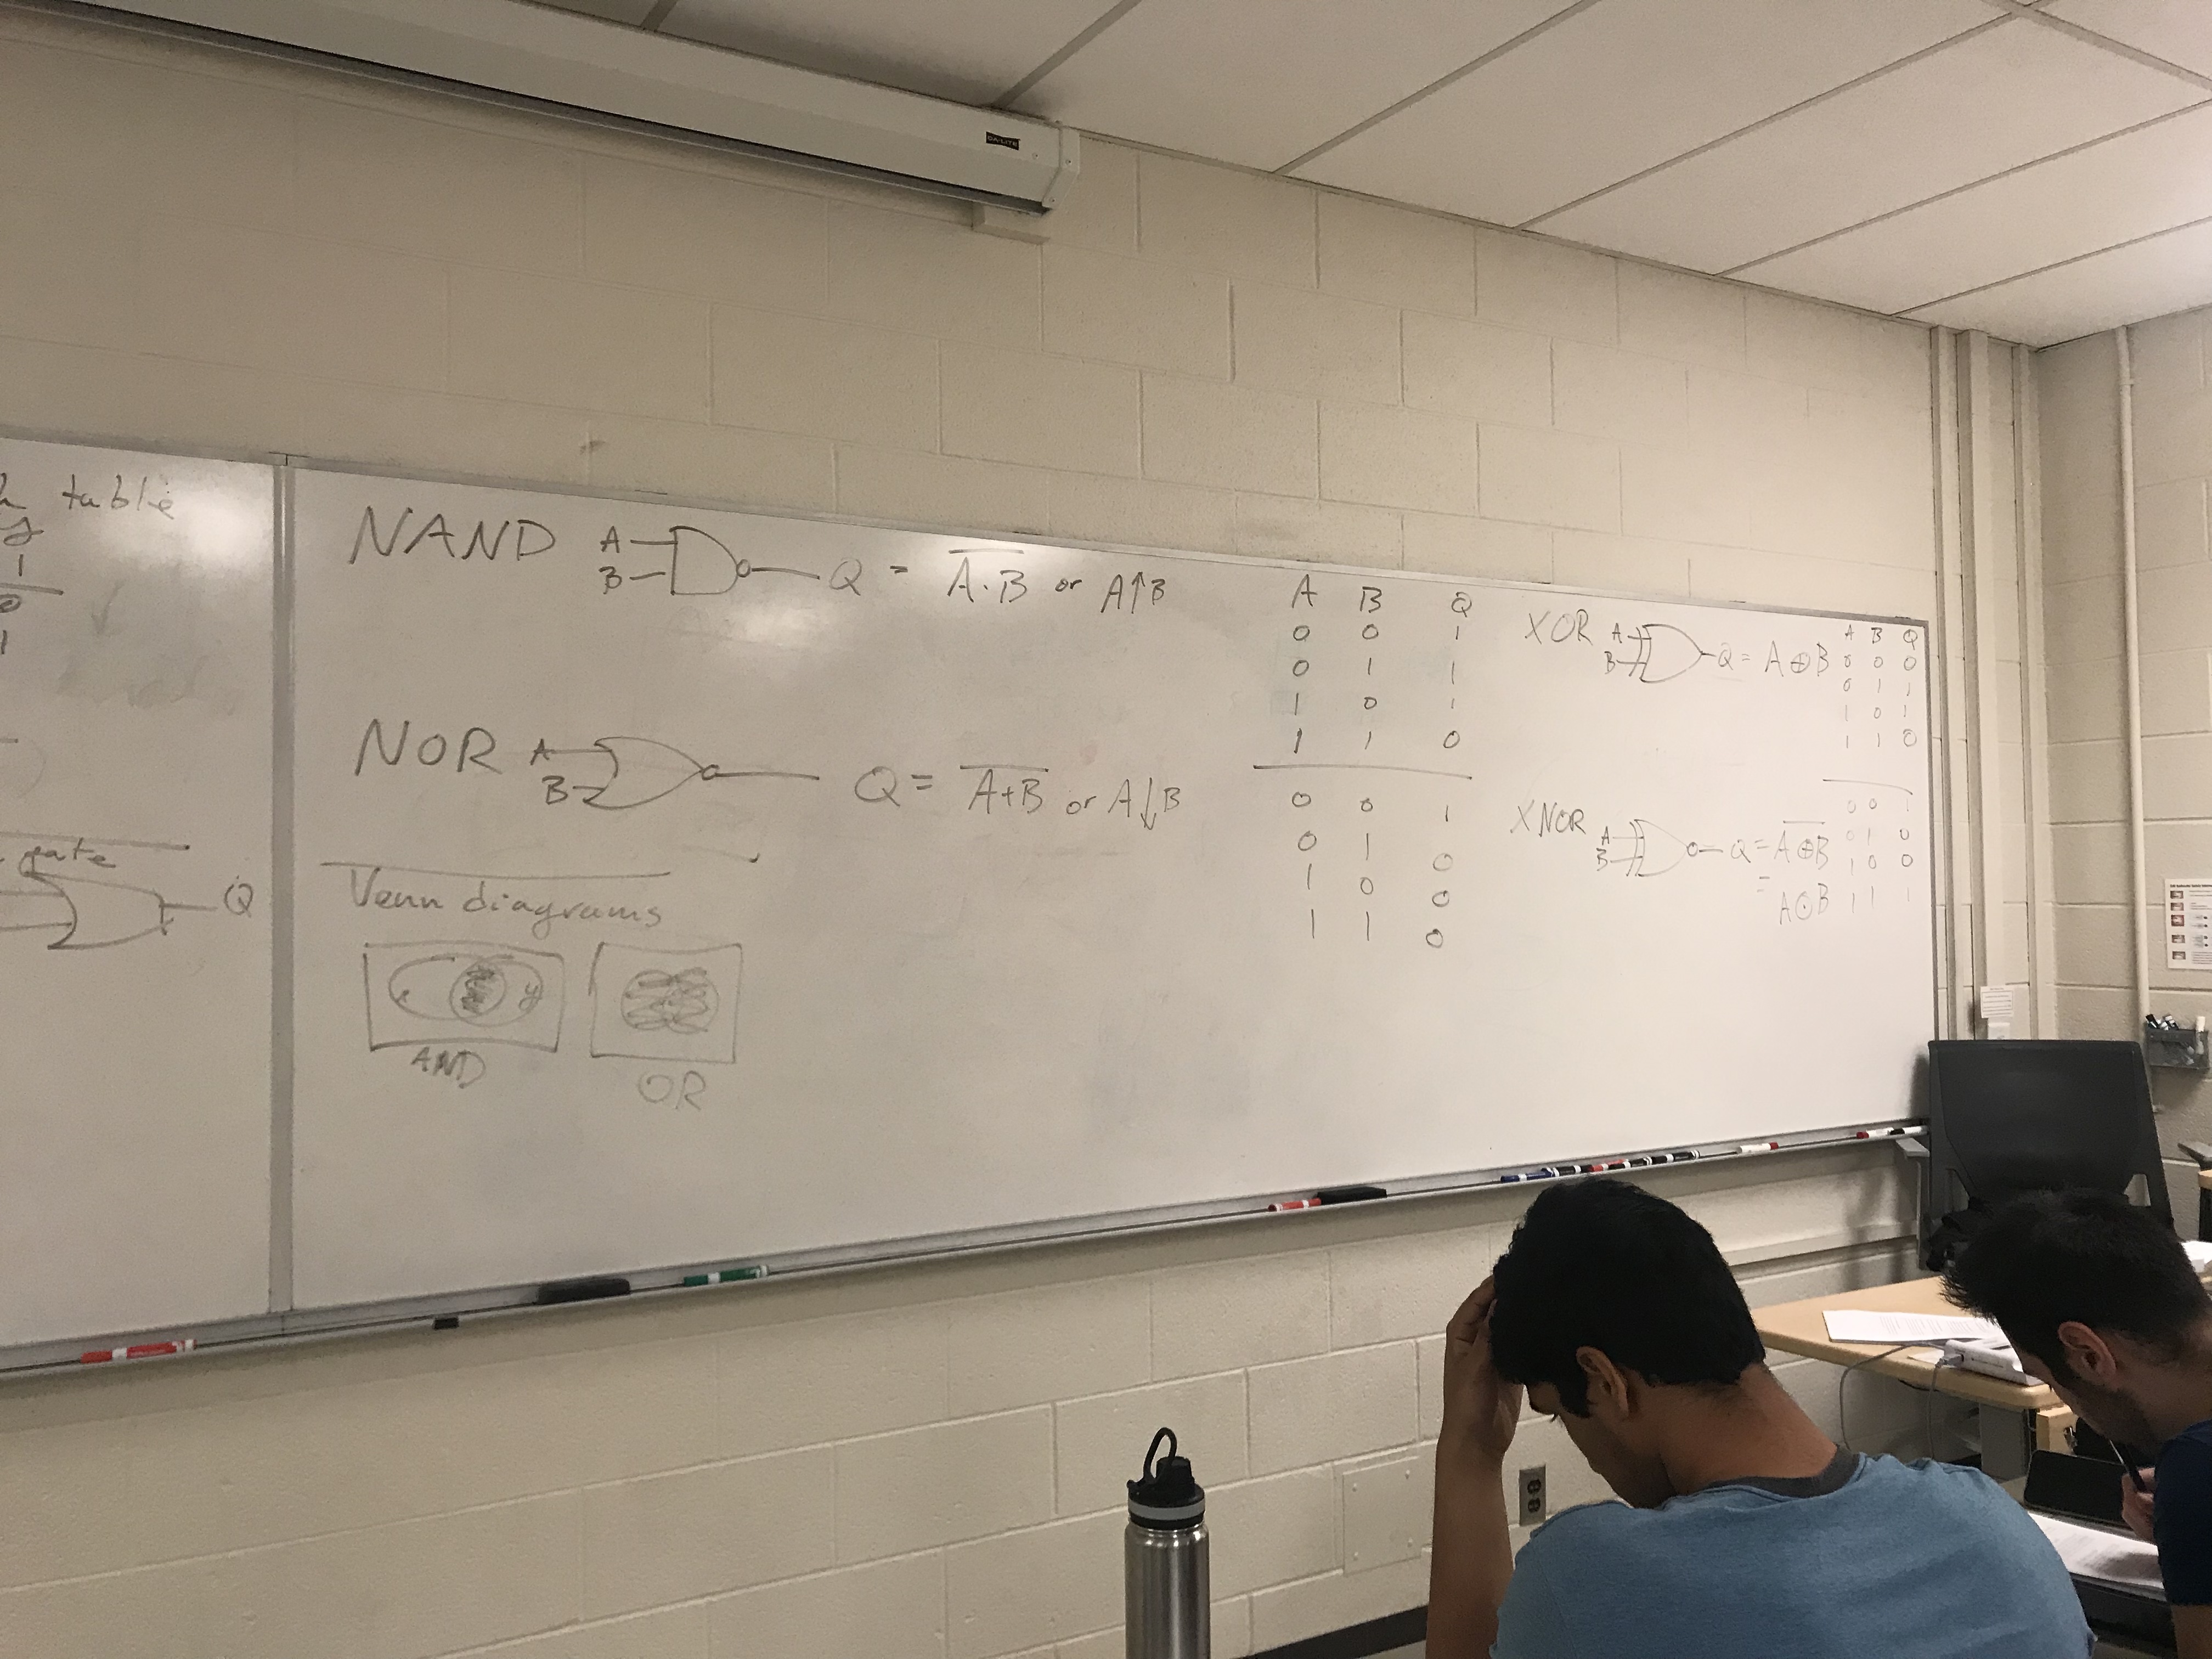 DA-LITE
table
y
1
0
1
gate
Q
NAND A B Q = A̅·̅B̅ or A↑B
NOR A B Q = A̅+̅B̅ or A↓B
Venn diagrams
x y
AND
OR
A B Q
0 0 1
0 1 1
1 0 1
1 1 0
0 0 1
0 1 0
1 0 0
1 1 0
XOR A B Q = A⊕B
A B Q
0 0 0
0 1 1
1 0 1
1 1 0
XNOR A B Q = A̅⊕̅B̅
= A⊙B
0 0 1
0 1 0
1 0 0
1 1 1